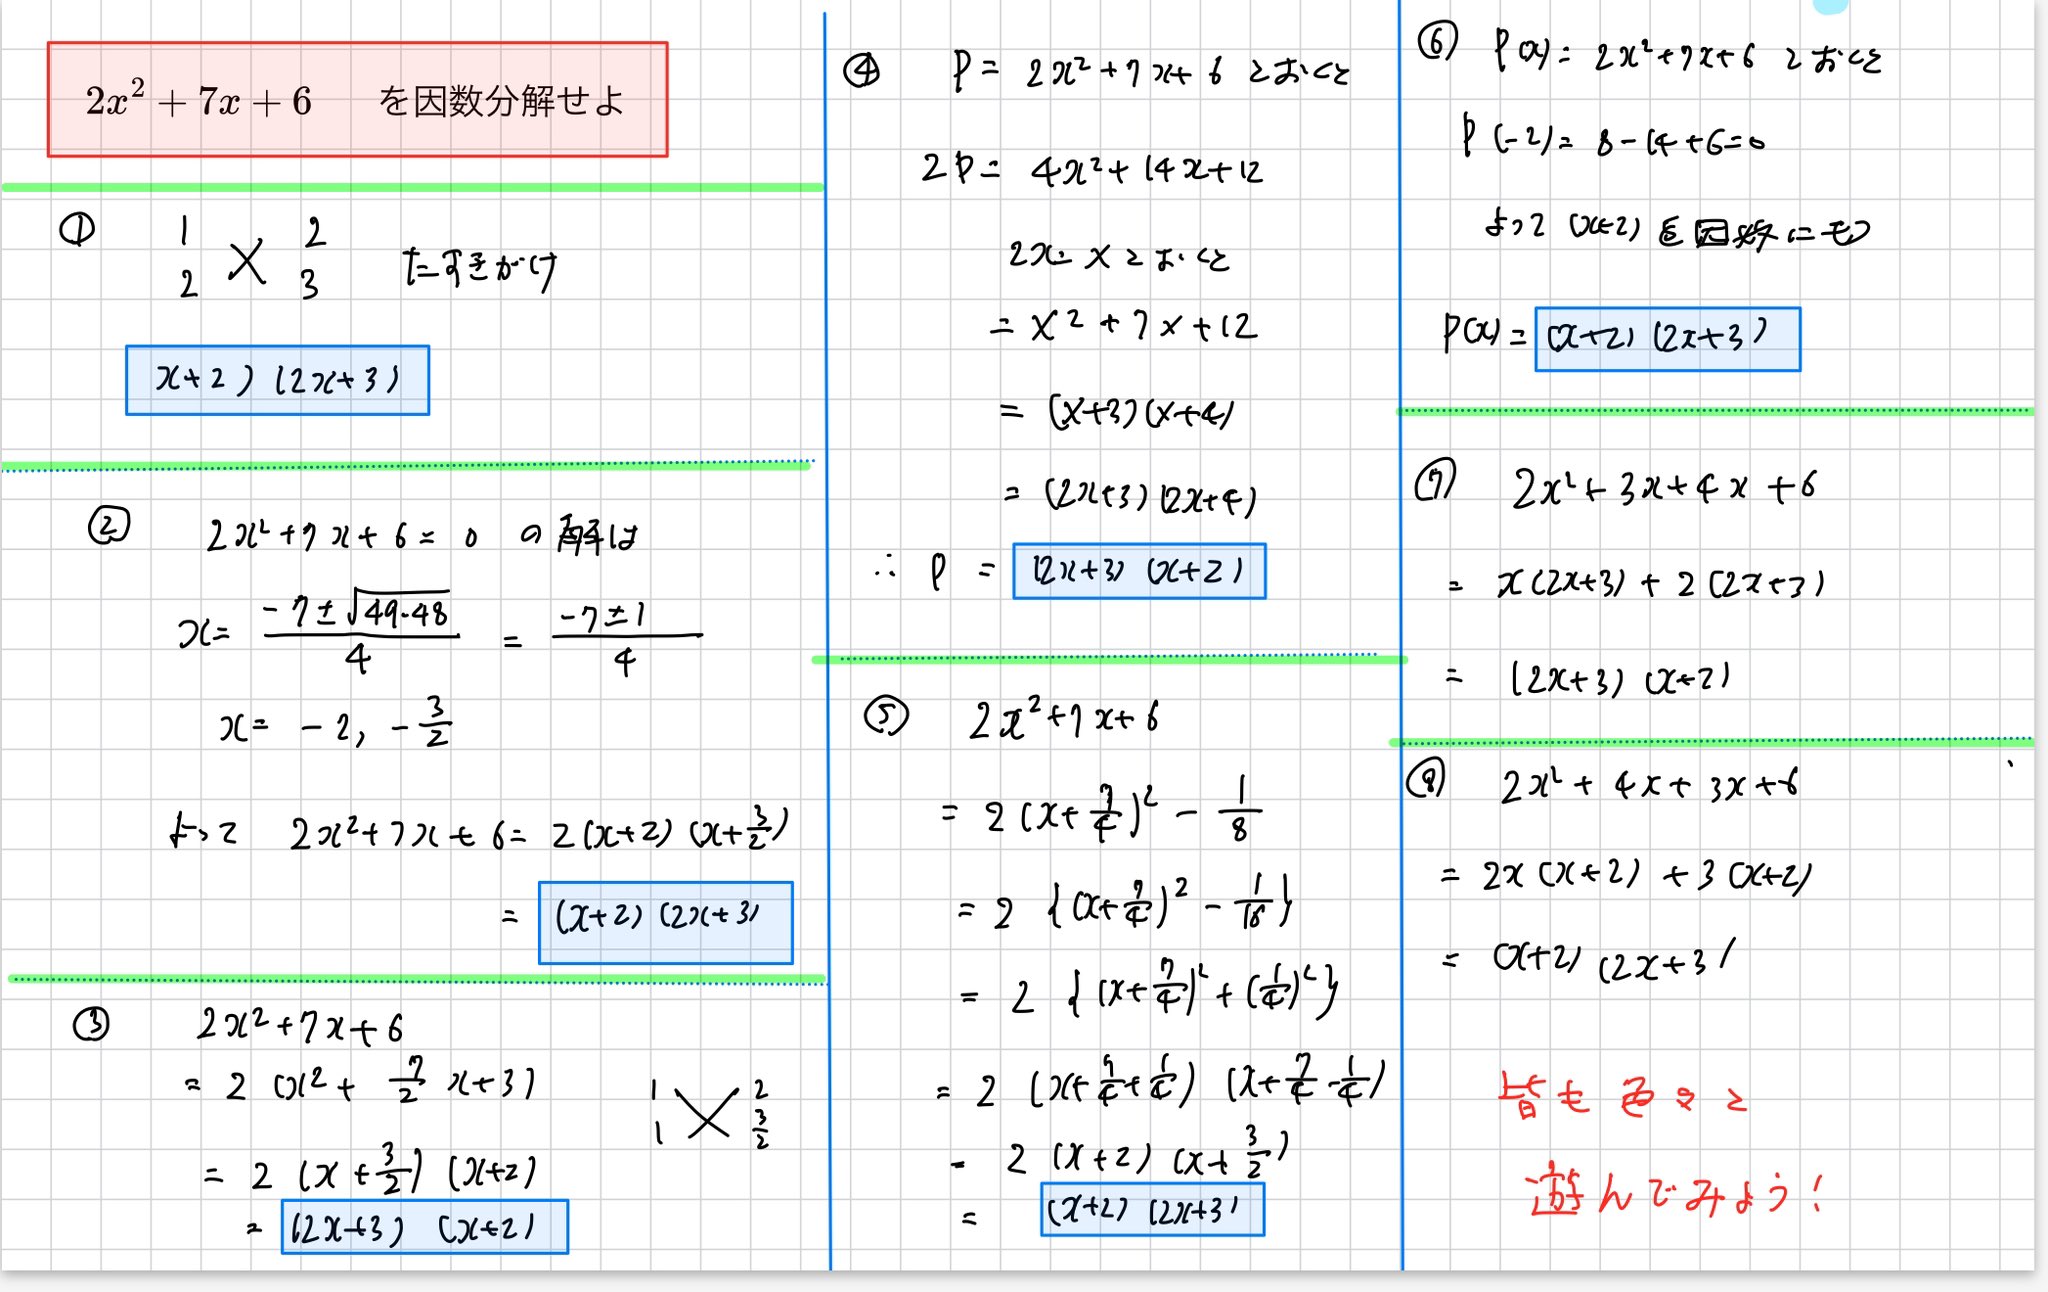 2x² + 7x + 6 を因数分解せよ
① 1 2
2 3 たすきがけ
x+2)(2x+3)
② 2x²+7x+6=0 の解は
x= (-7±√(49-48))/4 = (-7±1)/4
x= -2, -3/2
よって 2x²+7x+6= 2(x+2)(x+3/2)
= (x+2)(2x+3)
③ 2x²+7x+6
= 2(x²+ 7/2 x+3)
1 2
1 3/2
= 2(x+3/2)(x+2)
= (2x+3)(x+2)
④ P= 2x²+7x+6 とおくと
2P= 4x²+14x+12
2x=X とおくと
= X²+7X+12
= (X+3)(X+4)
= (2x+3)(2x+4)
∴ P = (2x+3)(x+2)
⑤ 2x²+7x+6
= 2(x+7/4)² - 1/8
= 2{(x+7/4)² - 1/16}
= 2{(x+7/4)²+(1/4)²}
= 2(x+7/4+1/4)(x+7/4-1/4)
= 2(x+2)(x+3/2)
= (x+2)(2x+3)
⑥ P(x)= 2x²+7x+6 とおくと
P(-2)= 8-14+6=0
よって (x+2) を因数にもつ
P(x)= (x+2)(2x+3)
⑦ 2x²+3x+4x+6
= x(2x+3)+2(2x+3)
= (2x+3)(x+2)
⑧ 2x²+4x+3x+6
= 2x(x+2)+3(x+2)
= (x+2)(2x+3)
皆も色々と
遊んでみよう!